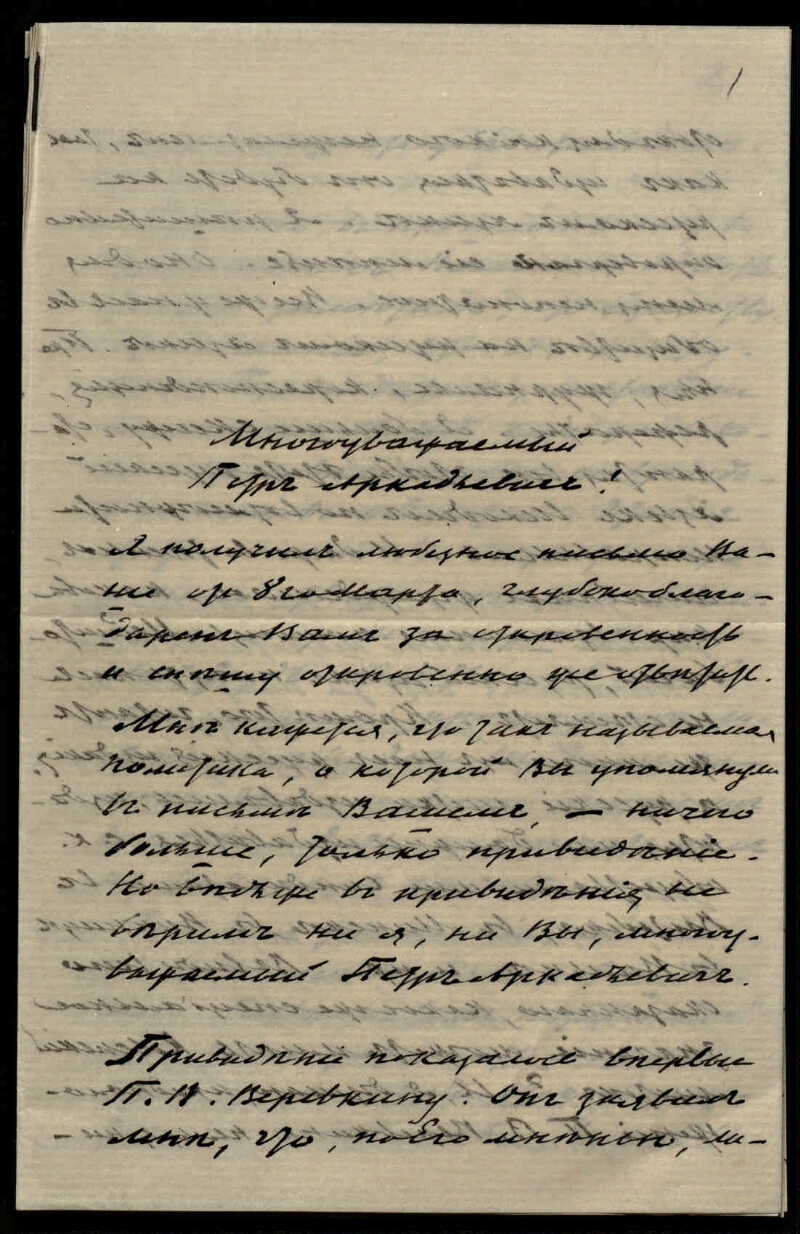 1
Многоуважаемый
Петръ Аркадьевичъ!
Я получилъ любезное письмо Ва-
ше отъ 8го Марта, глубокоблаго-
даренъ Вамъ за откровенность
и спѣшу откровенно же отвѣтить.
Мнѣ кажется, что такъ называемая
политика, о которой Вы упомянули
въ письмѣ Вашемъ, — ничего
больше, только привидѣніе.
Но вѣдь же въ привидѣнія не
вѣримъ ни я, ни Вы, многоу-
важаемый Петръ Аркадьевичъ.
Привидѣніе показалось впервые
П. В. Веревкину. Онъ заявилъ
мнѣ, что, по Его мнѣнію, ли-